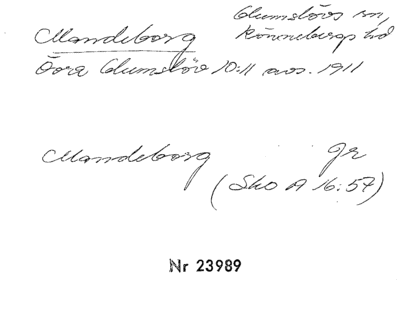 Mandeborg Glumslövs sn,
Rönnebergs hd
Övra Glumslöv 10:11 avs. 1911
Mandeborg Jr
(Sko A 16:57)
Nr 23989